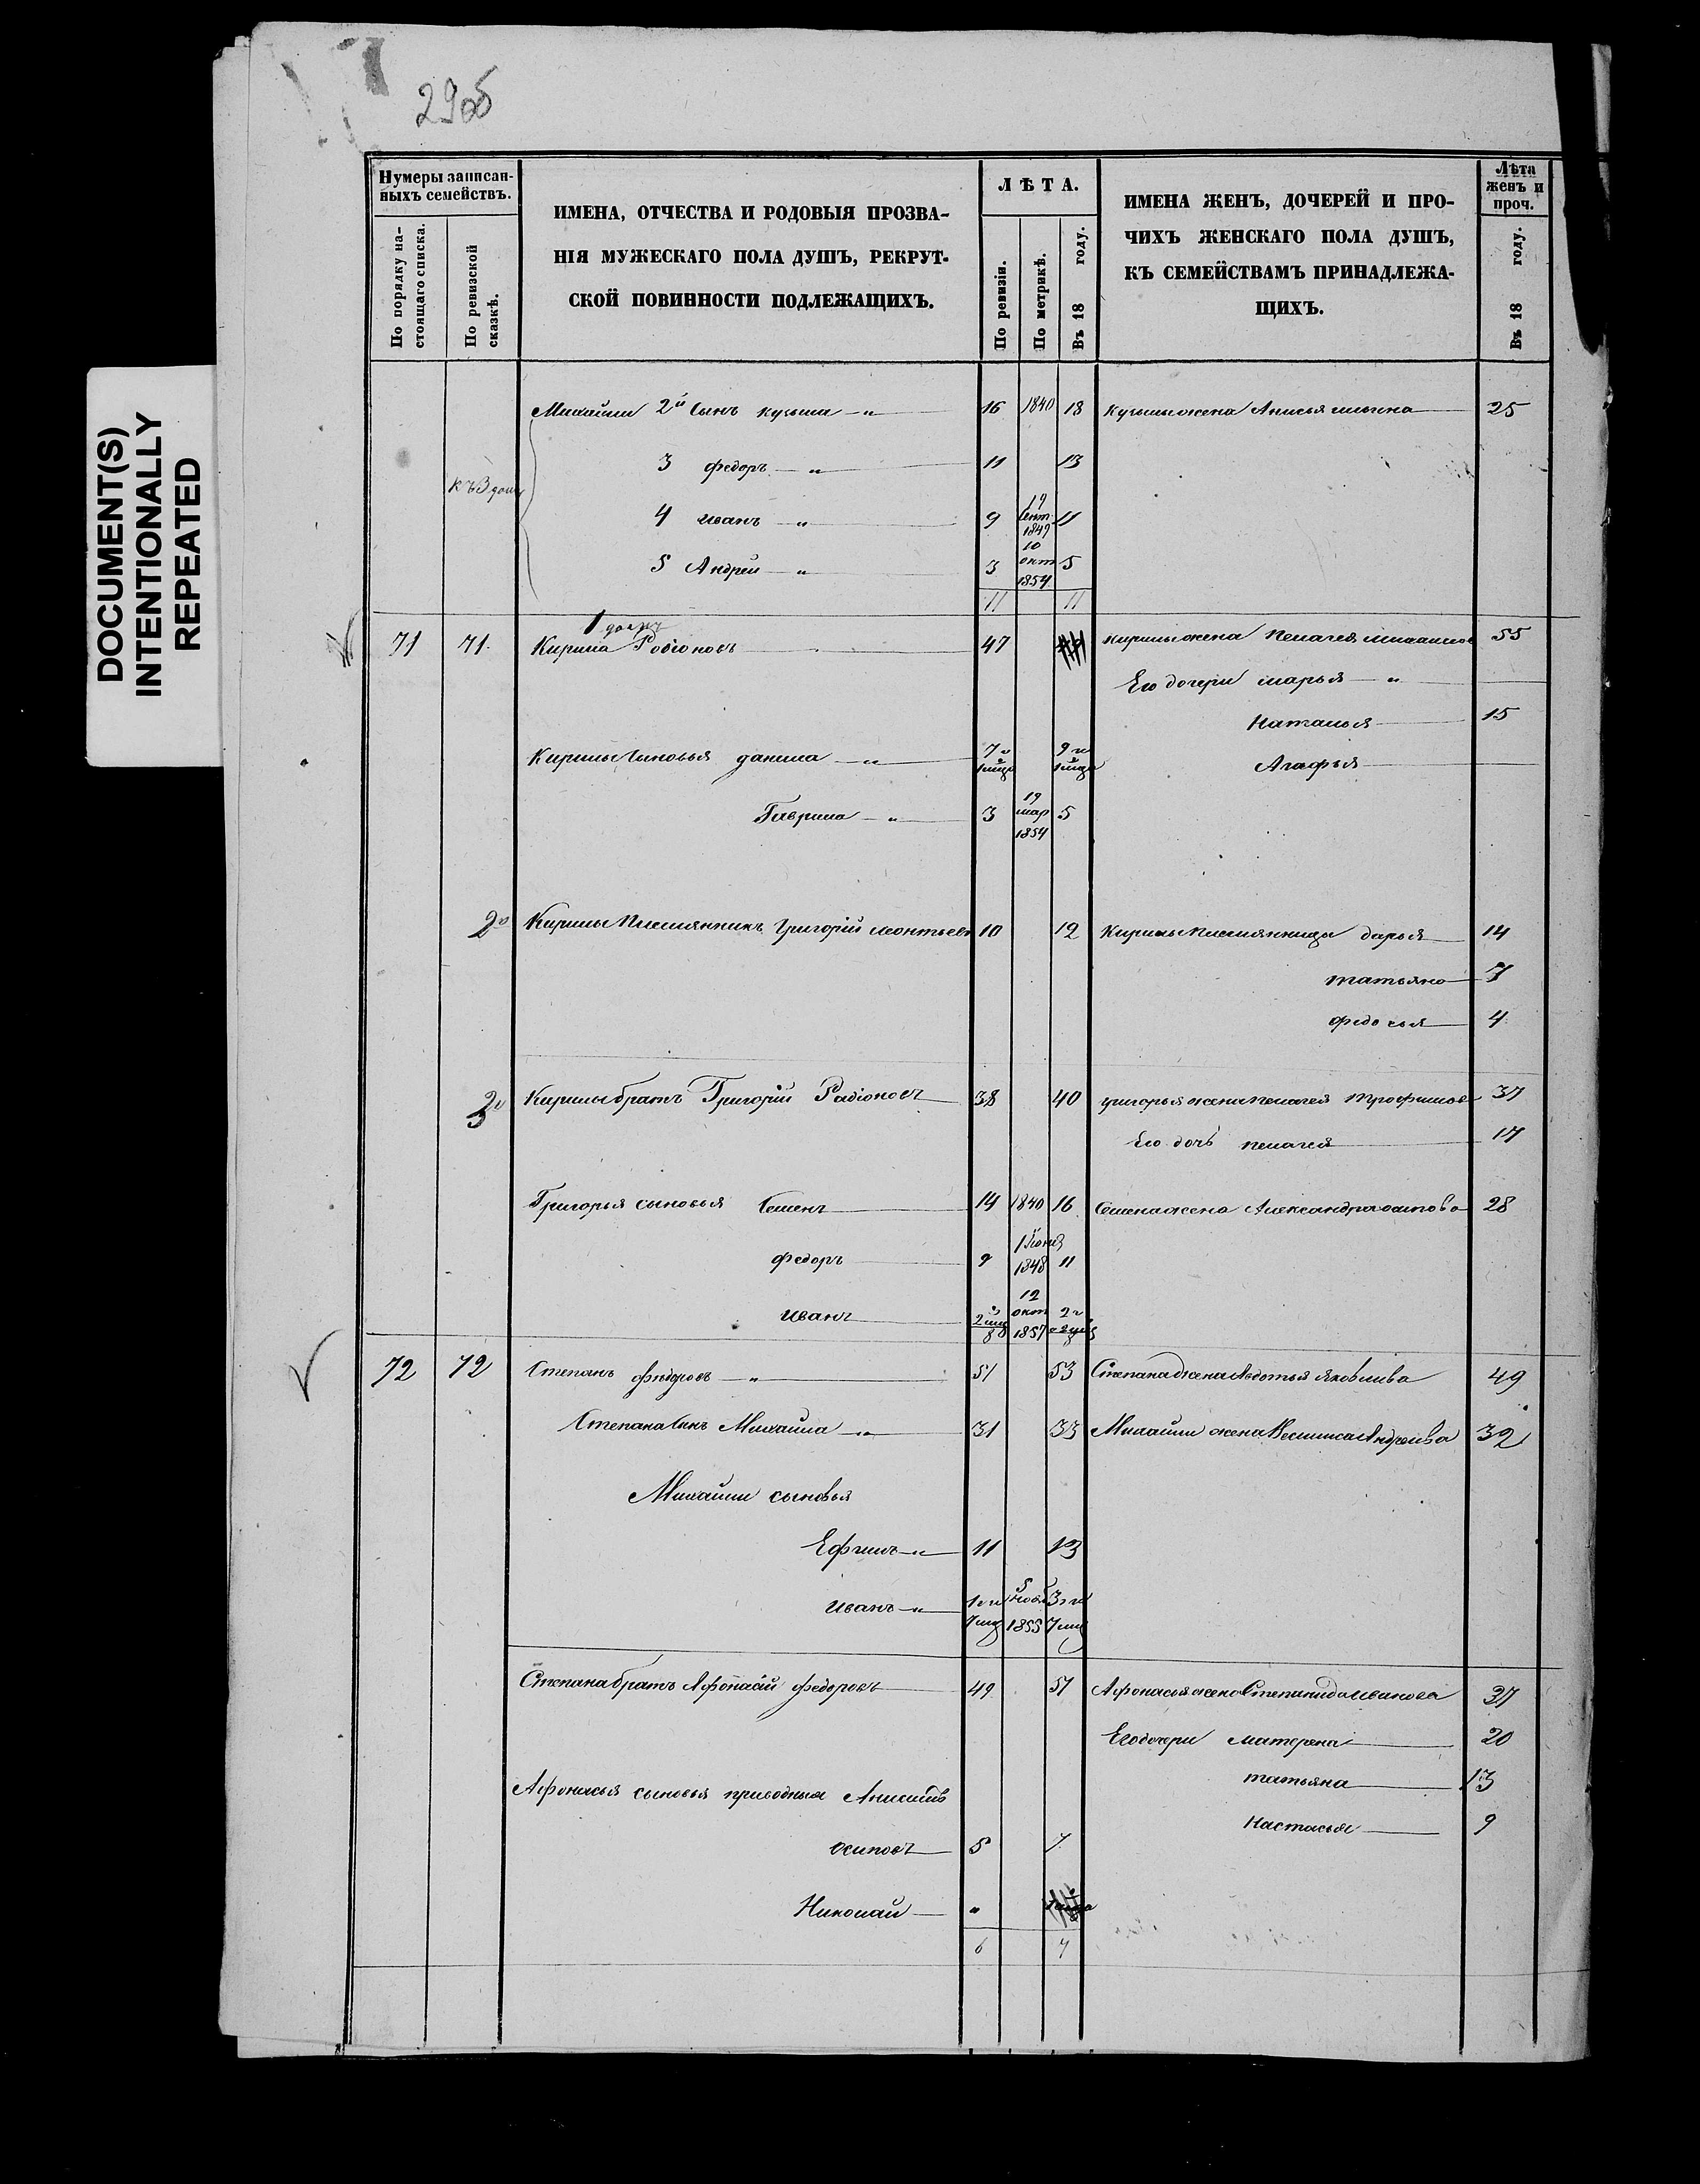 29об
DOCUMENT(S)
INTENTIONALLY
REPEATED
Нумеры записан-
ныхъ семействъ.
По порядку на-
стоящаго списка.
По ревизской
сказкѣ.
ИМЕНА, ОТЧЕСТВА И РОДОВЫЯ ПРОЗВА-
НІЯ МУЖЕСКАГО ПОЛА ДУШЪ, РЕКРУТ-
СКОЙ ПОВИННОСТИ ПОДЛЕЖАЩИХЪ.
ЛѢТА.
По ревизіи.
По метрикѣ.
Въ 18 году.
ИМЕНА ЖЕНЪ, ДОЧЕРЕЙ И ПРО-
ЧИХЪ ЖЕНСКАГО ПОЛА ДУШЪ,
КЪ СЕМЕЙСТВАМЪ ПРИНАДЛЕЖА-
ЩИХЪ.
Лѣта
женъ и
проч.
Въ 18 году.
Михайлы 2й Сынъ кузьма " 16 1840 18 кузьмы жена Анисья 25
3 федоръ " 11 13
къ 3
4 иванъ " 9 Сент 1849 11
5 Андрей " 3 10 окт 1854 5
11 11
1
71 71 Кирила Родіоновъ 47 кирилы жена пелагея михаилов 55
Его дочери марья "
наталья 15
Кирилы Сыновья данила " 7 9 Агафья
Гаврила " 3 19 мар 1854 5
2й Кирилы Племянникъ Григорій леонтьевъ 10 12 Кирилы племянницы дарья 14
татьяна 7
федосья 4
3й Кирилы братъ Григорій Радіоновъ 38 40 григорья жена пелагея трофимова 37
Его дочь пелагея 17
Григорья сыновья Семенъ 14 1840 16 Семена жена Александра осипова 28
федоръ 9 1 Іюня 1848 11
иванъ 2 12 окт 1857 2
72 72 Степанъ федоровъ " 51 53 Степана жена Авдотья яковлива 49
Степана Сынъ Михаила " 31 33 Михайлы жена Василиса Андреива 32
Михайлы сыновья
Ефимъ " 11 13
иванъ " 1 5 нояб 1855 3
Степана братъ Афонасій федоровъ 49 51 Афонасья жена Степанида иванова 37
Его дочери матрена 20
татьяна 13
Афонасья сыновья приводныя Анисимъ
настасья 9
осиповъ 5 7
Николай "
6 7